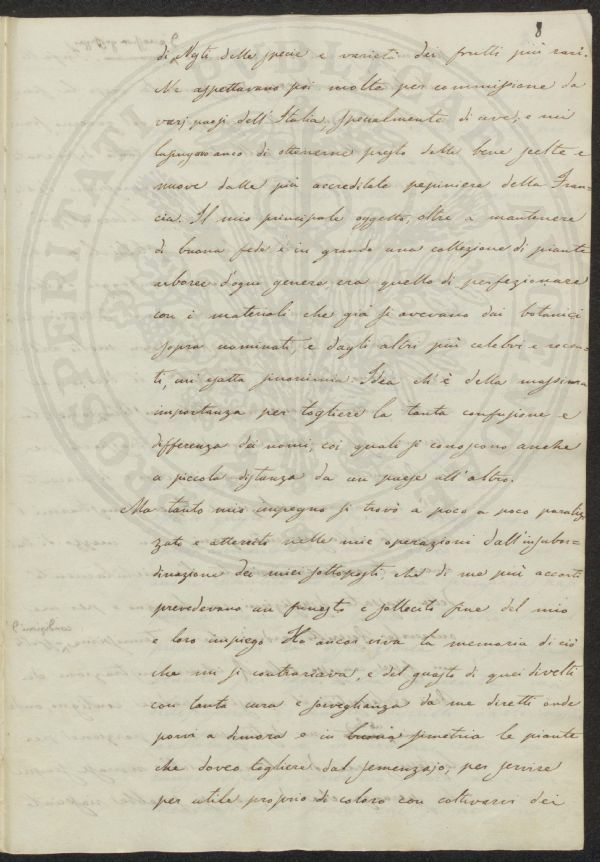 8
di Nesti delle specie e varietà dei frutti più rari.
Ne aspettavano poi molte per commissione da
varj paesi dell'Italia, specialmente di uve, e mi
lusingavo anco di ottenerne presto delle bene scelte e
nuove dalle più accreditate pepiniere della Fran-
cia. Il mio principale oggetto, oltre a mantenere
di buona fede e in grande una collezione di piante
arboree d'ogni genere, era quello di perfezionare
con i materiali che già si avevano dai botanici
sopra nominati, e dagli altri più celebri e recen-
ti, un'esatta sinonimia. Idea ch'è della massima
importanza per togliere la tanta confusione e
differenza dei nomi, coi quali si conoscono anche
a piccola distanza da un paese all'altro.
Ma tanto mio impegno si trovò a poco a poco paraliz-
zato e atterrito nelle mie operazioni dall'insubor-
dinazione dei miei sottoposti, che di me più accorti
prevedevano un funesto e sollecito fine del mio
e loro impiego. Ho ancor viva la memoria di ciò
che mi si contrariava, e del guasto di quei divelti
con tanta cura e sorveglianza da me diretti onde
porvi a dimora e in simetria le piante
che doveo togliere dal semenzajo, per servire
per utile proprio di coloro con coltivarvi dei
PROSPERITATI PUBLICAE